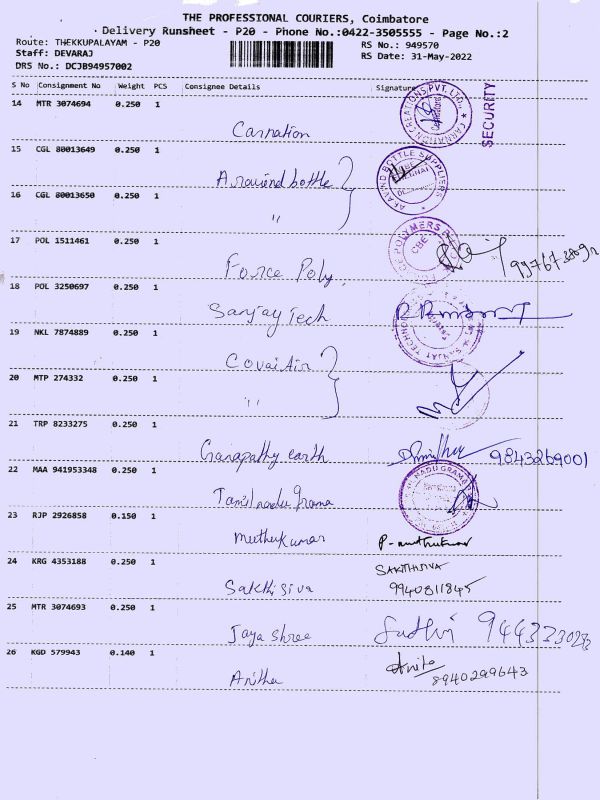 THE PROFESSIONAL COURIERS, Coimbatore
Delivery Runsheet - P20 - Phone No.:0422-3505555 - Page No.:2
Route: THEKKUPALAYAM - P20
RS No.: 949570
Staff: DEVARAJ
RS Date: 31-May-2022
DRS No.: DCJB94957002
S No Consignment No Weight PCS Consignee Details Signature
14 MTR 3074694 0.250 1
Carnation
CARNATION CREATIONS PVT. LTD.
SECURITY
15 CGL 80013649 0.250 1
Aravind bottle
ARAVIND BOTTLE SUPPLIERS
16 CGL 80013650 0.250 1
"
17 POL 1511461 0.250 1
Force Poly,
POLYMERS
CBE
18 POL 3250697 0.250 1
Sanjay Tech
19 NKL 7874889 0.250 1
Covai Air
20 MTP 274332 0.250 1
"
21 TRP 8233275 0.250 1
Ganapathy earth
9843269001
22 MAA 941953348 0.250 1
Tamilnadu Grama
NADU GRAMA
23 RJP 2926858 0.150 1
Muthukumar
P. Muthukumar
24 KRG 4353188 0.250 1
Sakthi Siva
SAKTHISIVA
9940811845
25 MTR 3074693 0.250 1
Jaya Shree
Sudhir
26 KGD 579943 0.140 1
Anitha
Anita
8940299643